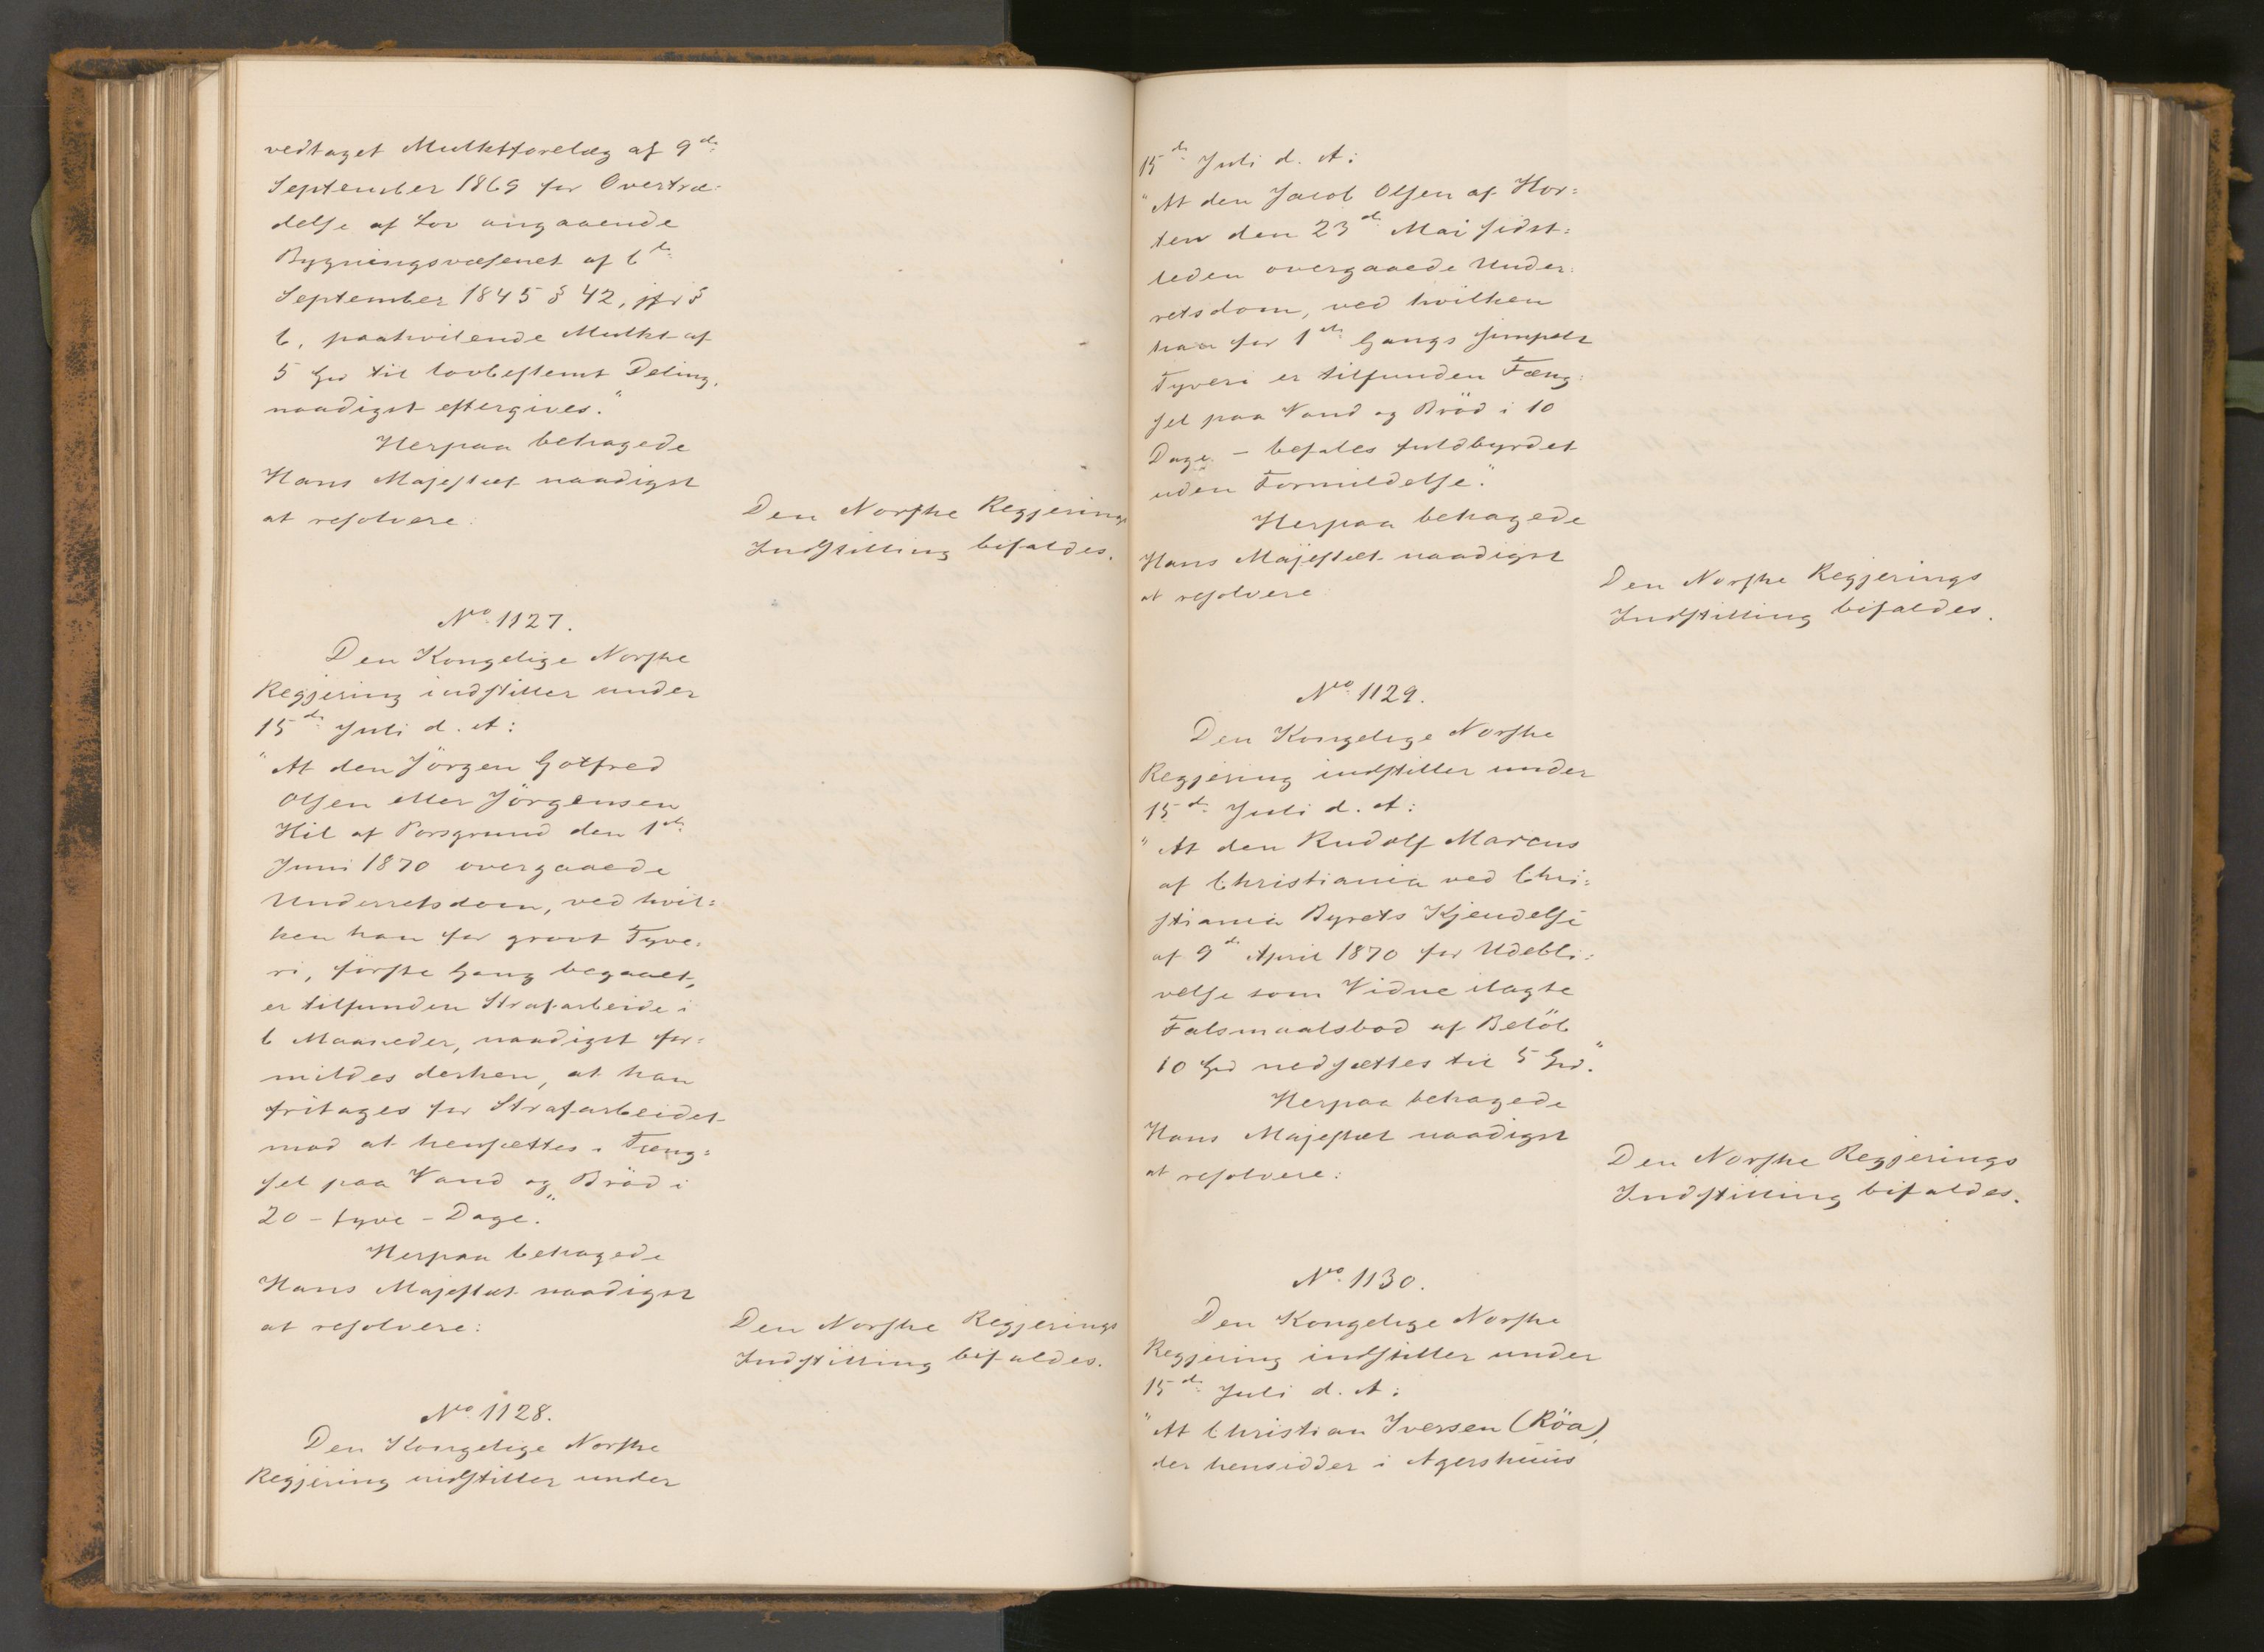 vedtaget Mulktforelæg af 9de
September 1869 for Overtræ:
delse af Lov angaaende
Bygningsvæsenet af 6te
September 1845 § 42, jfr §
6, paahvilende Mulkt af
5 Spd til lovbestemt Deling,
naadigst eftergives."
Herpaa behagede
Hans Majestæt naadigst
at resolvere:
Den Norske Regjerings
Indstilling bifaldes.
No. 1127.
Den Kongelige Norske
Regjering indstiller under
15de Juli d. A:
"At den Jörgen Gotfred
Olsen eller Jörgensen
Hil af Porsgrund den 1ste
Juni 1870 overgaaede
Underretsdom, ved hvil:
ken han for grovt Tyve:
ri, förste Gang begaaet,
er tilfunden Strafarbeide i
6 Maaneder, naadigst for:
mildes derhen, at han
fritages for Strafarbeidet
mod at hensættes i Fæng:
sel paa Vand og Bröd i
20 - tyve - Dage."
Herpaa behagede
Hans Majestæt naadigst
at resolvere:
Den Norske Regjerings
Indstilling bifaldes.
No. 1128.
Den Kongelige Norske
Regjering indstiller under
15de Juli d. A:
"At den Jacob Olsen af Hor:
ten den 23de Mai sidst:
leden overgaaede Under:
retsdom, ved hvilken
han for 1ste Gangs simpelt
Tyveri er tilfunden Fæng:
sel paa Vand og Bröd i 10
Dage - befales fuldbyrdet
uden Formildelse."
Herpaa behagede
Hans Majestæt naadigst
at resolvere:
Den Norske Regjerings
Indstilling bifaldes.
No. 1129.
Den Kongelige Norske
Regjering indstiller under
15de Juli d. A:
"At den Rudolf Marcus
af Christiania ved Chri:
stiania Byrets Kjendelse
af 9de April 1870 for Udebli:
velse som Vidne ilagte
Falsmaalsbod af Belöb
10 Spd nedsættes til 5 Spd."
Herpaa behagede
Hans Majestæt naadigst
at resolvere:
Den Norske Regjerings
Indstilling bifaldes.
No. 1130.
Den Kongelige Norske
Regjering indstiller under
15de Juli d. A:
"At Christian Iversen (Röa),
der hensidder i Agershuus